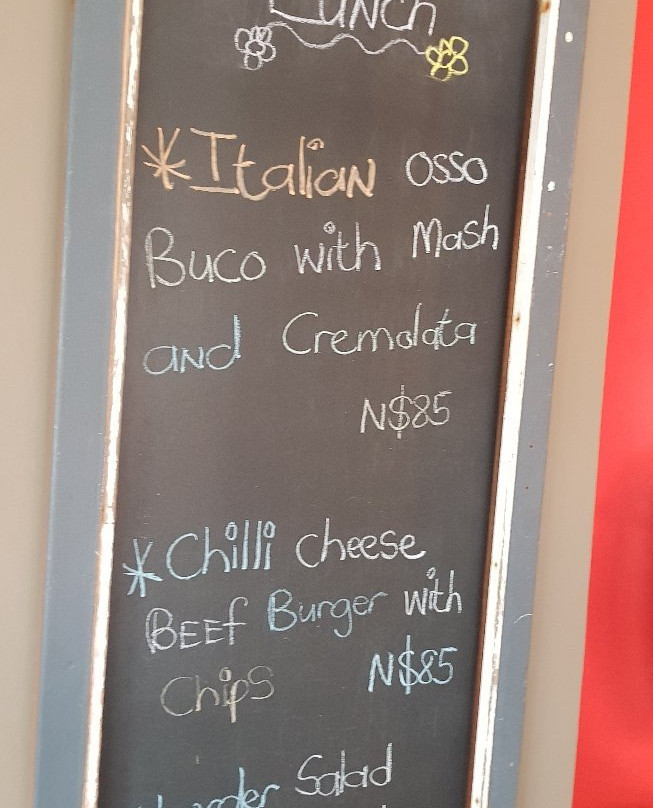 Lunch
*Italian osso
Buco with Mash
and Cremolata
N$85
*Chilli cheese
BEEf Burger with
Chips N$85
Salad